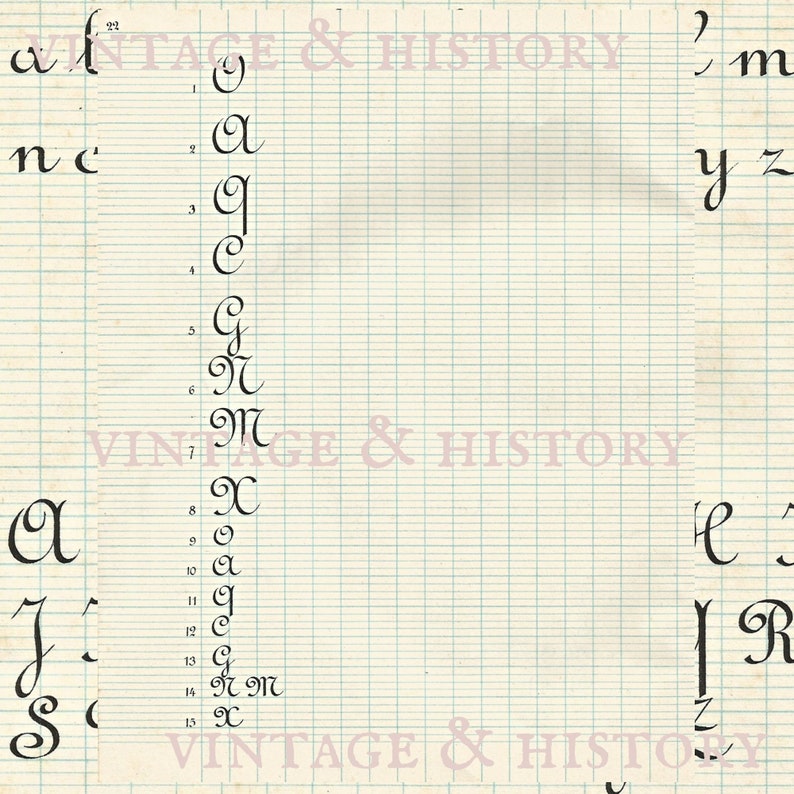 22
VINTAGE & HISTORY
a
m
1 O
2 A
n
y z
3 Q
4 C
5 G
6 N
7 M
VINTAGE & HISTORY
8 X
A
H
9 O
10 A
11 Q
J
R
12 C
13 G
14 N M
S
15 X
VINTAGE & HISTORY